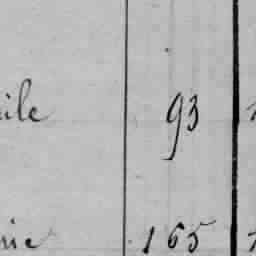 ile 93
nie 165